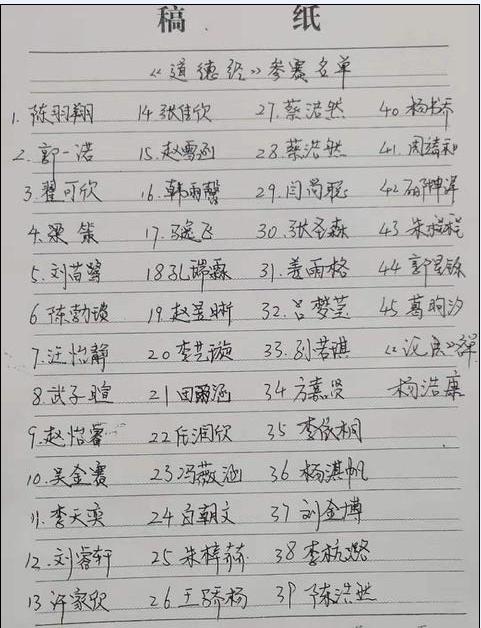 稿 纸
《道德经》参赛名单
1. 陈羽翔 14 张佳欣 27. 蔡浩然 40. 杨书乔
2. 郭一浩 15. 赵雪涵 28. 蔡浩然 41. 周禧和
3. 翟可欣 16. 韩雨馨 29. 闫尚聪 42
4. 梁策 17. 飞 30. 张圣森 43 朱
5. 刘苗鹭 18 孔瑞霖 31. 姜雨格 44 郭星铄
6 陈勃瑱 19. 赵昱晰 32. 吕梦莹 45 葛昫汐
7. 汪怡静 20 李艺璇 33. 刘若琪
8. 武子暄 21 田爾涵 34 方嘉贤 杨浩康
9. 赵怡睿 22 任润欣 35 李依桐
10. 吴金赛 23 冯薇涵 36 杨淇帆
11. 李天奕 24 白朝文 37 刘金博
12. 刘睿轩 25 朱梓菻 38 李杭潞
13 许家欣 26 王骄杨 39 陈浩然